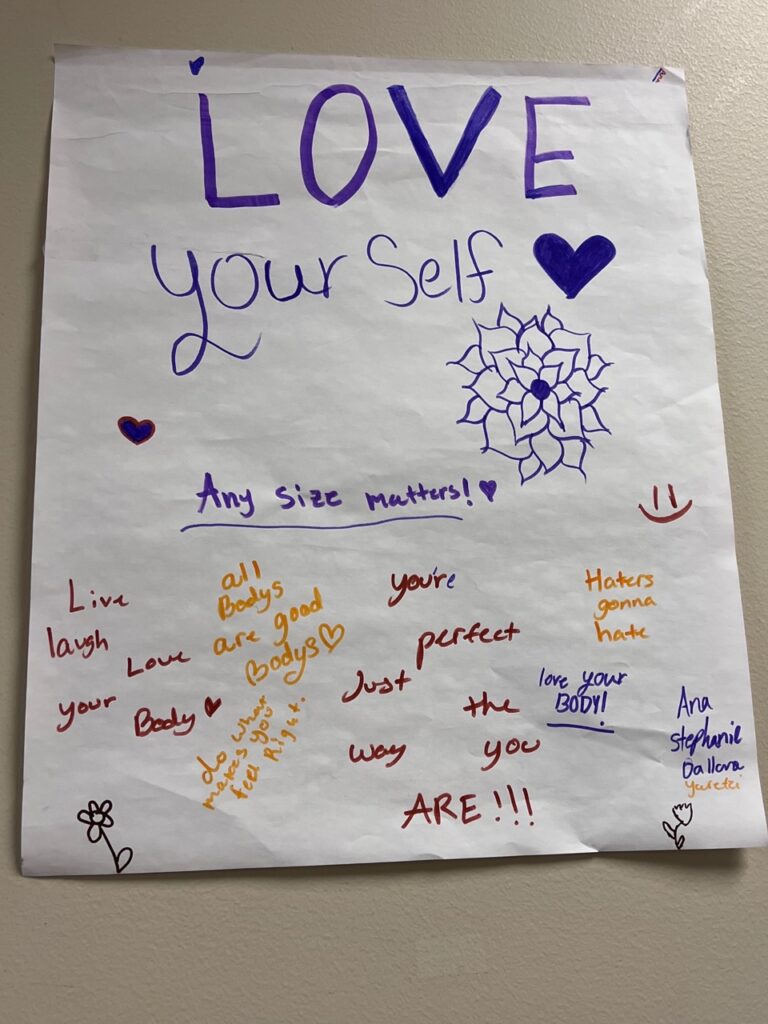 LOVE
yourself
Any size matters!
Live
laugh
Love
your Body
all
Bodys
are good
Bodys
do what
makes you
feel Right.
you're
perfect
Just the
way you
ARE!!!
Haters
gonna
hate
love your
BODY!
Ana
stephanie
Dallana